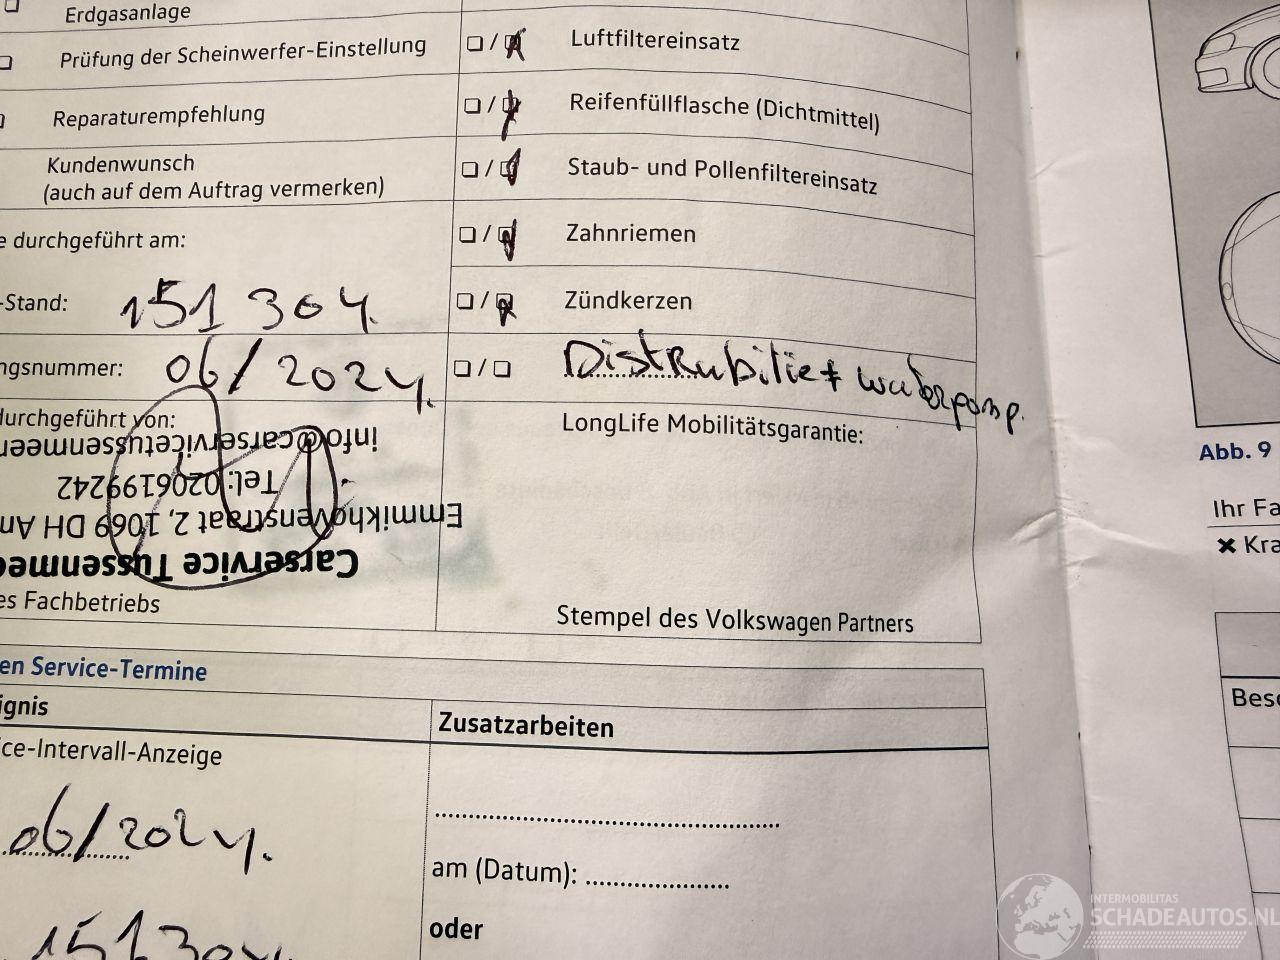 Erdgasanlage
Prüfung der Scheinwerfer-Einstellung
Reparaturempfehlung
Kundenwunsch
(auch auf dem Auftrag vermerken)
durchgeführt am:
-Stand: 151 304.
ngsnummer: 06/2024.
durchgeführt von:
info@carservicetussenmeer
Tel: 0206199242
Emmikhovenstraat 2, 1069 DH Am
Carservice Tussenmee
es Fachbetriebs
/ Luftfiltereinsatz
/ Reifenfüllflasche (Dichtmittel)
/ Staub- und Pollenfiltereinsatz
/ Zahnriemen
/ Zündkerzen
/ Distrubitie + waterpomp.
LongLife Mobilitätsgarantie:
Stempel des Volkswagen Partners
en Service-Termine
ignis
ice-Intervall-Anzeige
06/2024.
151304.
Zusatzarbeiten
am (Datum):
oder
Abb. 9
Ihr Fa
Kra
Besc
INTERMOBILITAS
SCHADEAUTOS.NL